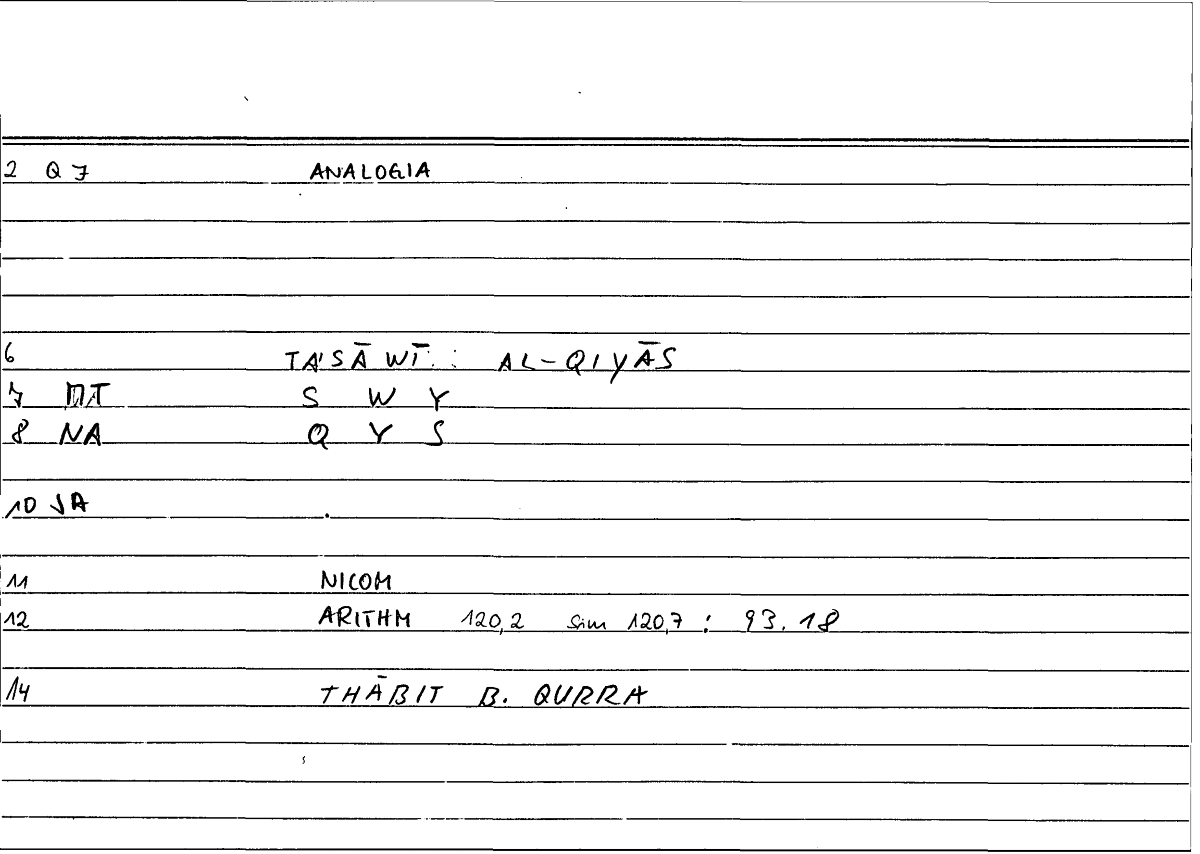 2 Q7 ANALOGIA
6 TA'SĀWĪ : AL-QIYĀS
7 S W Y
8 NA Q Y S
10 JA
11 NICOM
12 ARITHM 120,2 sim 120,7 : 93.18
14 THĀBIT B. QURRA